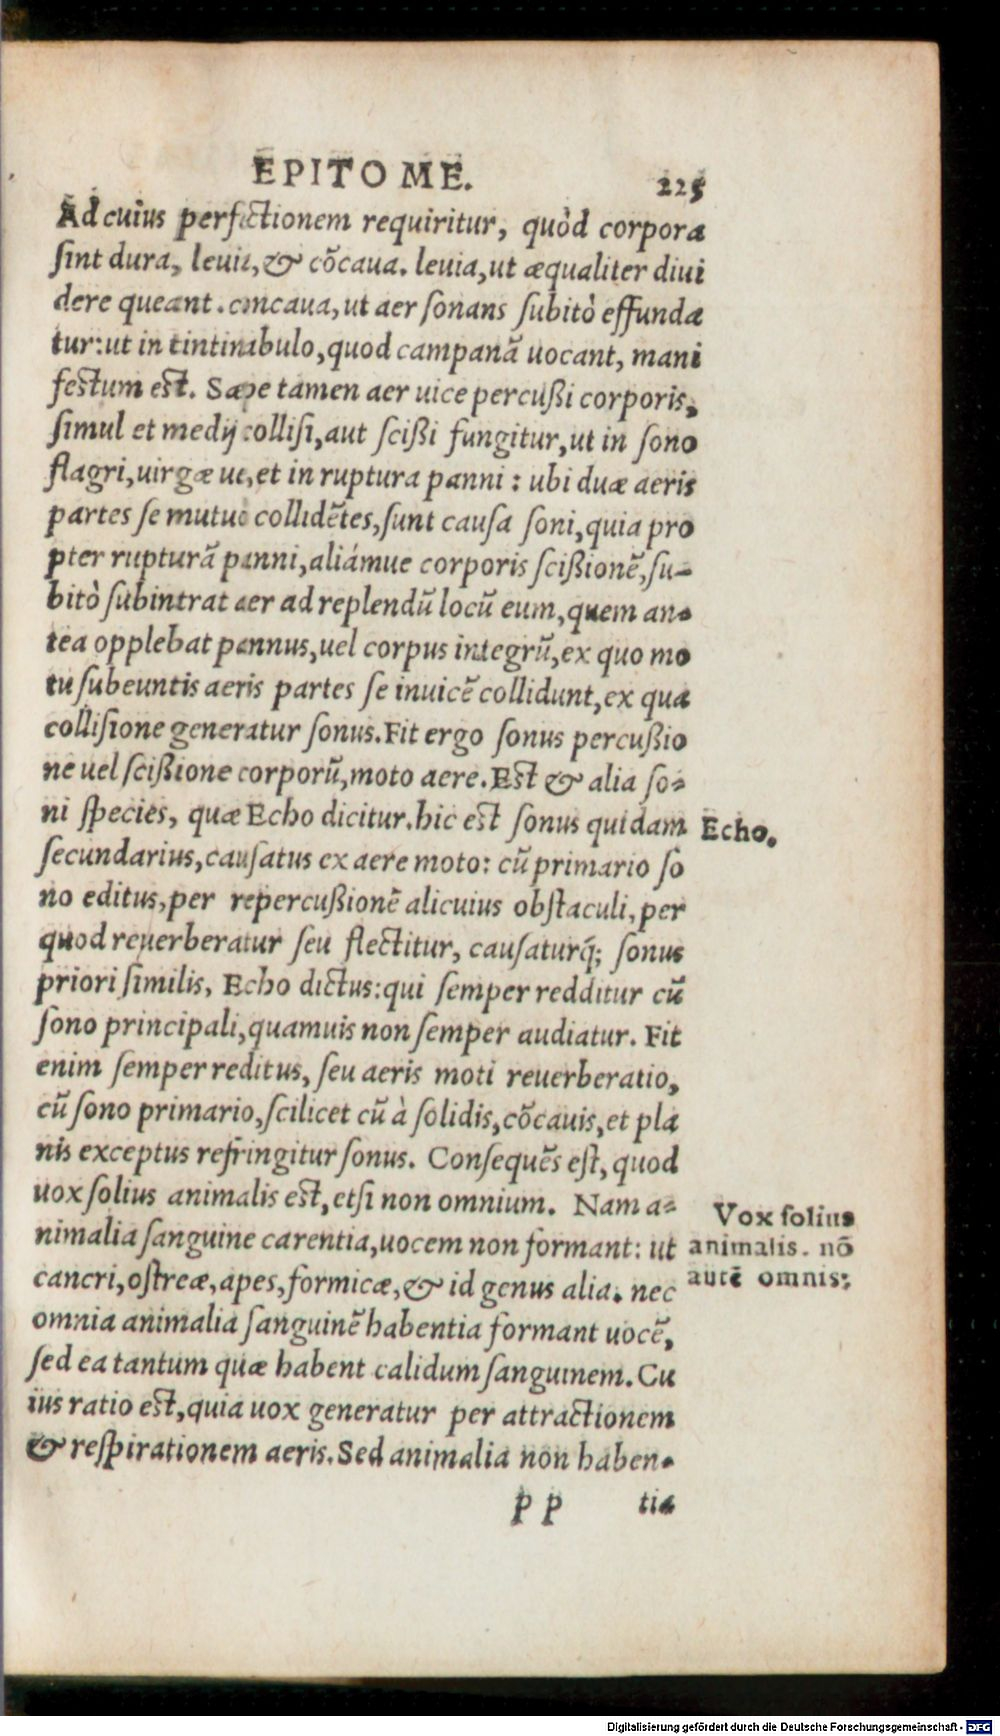 EPITOME.
225
Ad cuius perfectionem requiritur, quòd corpora
sint dura, leuia, & cõcaua. leuia, ut æqualiter diui
dere queant. concaua, ut aer sonans subitò effunda
tur: ut in tintinabulo, quod campanã uocant, mani
festum est. Sæpe tamen aer uice percußi corporis,
simul et medij collisi, aut scißi fungitur, ut in sono
flagri, uirgæ ue, et in ruptura panni: ubi duæ aeris
partes se mutuo collidẽtes, sunt causa soni, quia pro
pter rupturã panni, aliámue corporis scißionẽ, su-
bitò subintrat aer ad replendũ locũ eum, quem an-
tea opplebat pannus, uel corpus integrũ, ex quo mo
tu subeuntis aeris partes se inuicẽ collidunt, ex qua
collisione generatur sonus. Fit ergo sonus percußio
ne uel scißione corporũ, moto aere. Est & alia so-
ni species, quæ Echo dicitur. hic est sonus quidam
Echo.
secundarius, causatus ex aere moto: cũ primario so
no editus, per repercußionẽ alicuius obstaculi, per
quod reuerberatur seu flectitur, causaturq́; sonus
priori similis, Echo dictus: qui semper redditur cũ
sono principali, quamuis non semper audiatur. Fit
enim semper reditus, seu aeris moti reuerberatio,
cũ sono primario, scilicet cũ à solidis, cõcauis, et pla
nis exceptus refringitur sonus. Consequẽs est, quod
uox solius animalis est, etsi non omnium. Nam a-
Vox solius
animalis. nõ
autẽ omnis:
nimalia sanguine carentia, uocem non formant: ut
cancri, ostreæ, apes, formicæ, & id genus alia. nec
omnia animalia sanguinẽ habentia formant uocẽ,
sed ea tantum quæ habent calidum sanguinem. Cu
ius ratio est, quia uox generatur per attractionem
& respirationem aeris. Sed animalia non haben-
pp
tia
Digitalisierung gefördert durch die Deutsche Forschungsgemeinschaft - DFG